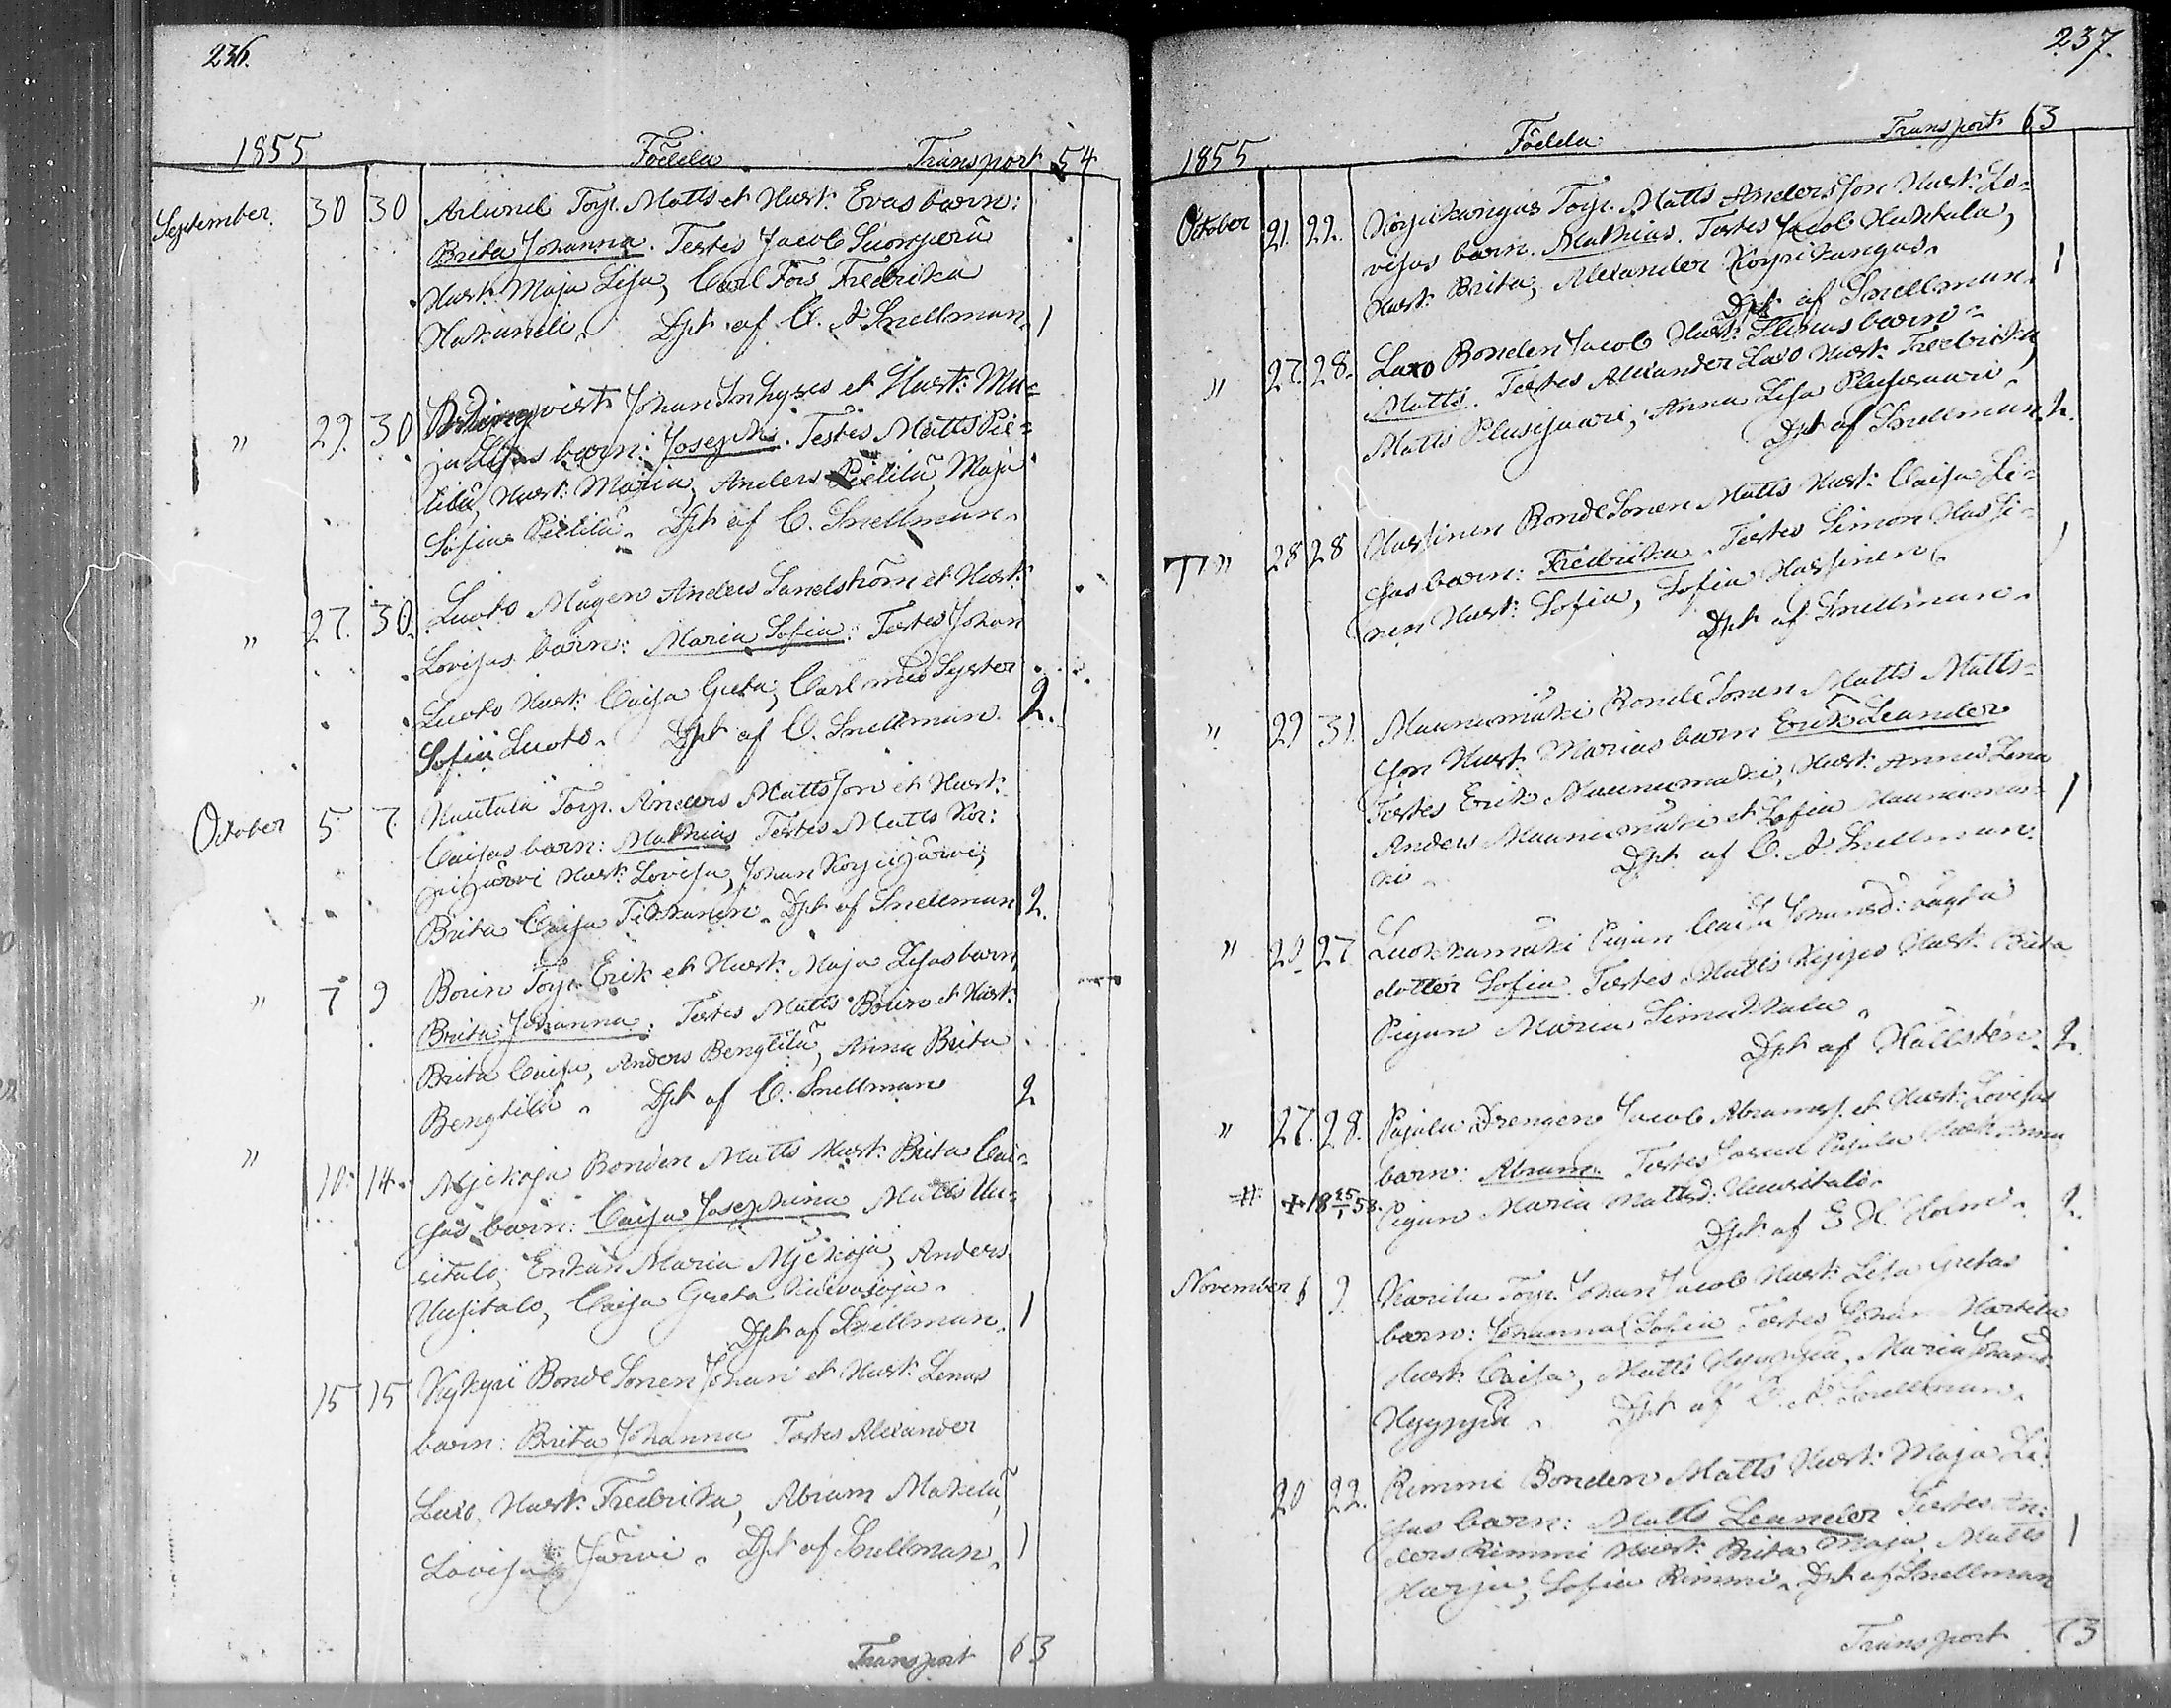 236.
1855 Födda Transport 54
September 30 30 Torp. Matts et Hust: Evas barn:
Brita Johanna. Testes Jacob Suonperä
Hust: Maja Lisa, Carl Fors, Fredrika
Dpt af C. A Snellman. 1
" 29. 30 Johan Inhyses et Hust: Ma-
ja Lisas barn: Joseph. Testes Matts Pie-
tilä, Hust: Maria, Anders Pietilä, Maja
Sofia Pietilä. Dpt af C. Snellman.
" 27. 30. Luoto Mågen Anders Sandström et Hust:
Lovisas barn: Maria Sofia. Testes Johan
Luoto Hust: Caisa Greta, Carl med Syster
Sofia Luoto. Dpt af C. Snellman. 2.
October 5 7. Torp. Anders Mattsson et Hust:
Caisas barn: Mathias Testes Matts Kor:
pijärvi Hust: Lovisa, Johan Korpijärvi,
Brita Caisa Tikkanen. Dpt af Snellman 2.
" 7 9 Torp. Erik et Hust: Maja Lisas barn,
Brita Johanna. Testes Matts et Hust:
Brita Caisa, Anders Bengtilä, Anna Brita
Bengtilä. Dpt af C. Snellman 2
" 10. 14. Bonden Matts Hust: Brita Cai-
sas barn: Caisa Josephina Matts Uu-
sitalo, Enkan Maria Anders
Uusitalo, Caisa Greta
Dpt af Snellman. 1
15 15 Bonde Sonen Johan et Hust: Lenas
barn: Brita Johanna Testes Alexander
Laxo, Hust: Fredrika, Abram Makelä,
Lovisa Järvi. Dpt af Snellman. 1
Transport 63
237.
1855 Födda Transport 63
October 21. 22. Korpikangas Torp. Matts Andersson Hust: Lo-
visas barn. Mathias. Testes Jacob Huhtala,
Hust: Brita, Alexander Korpikangas. 1
Dpt af Snellman.
" 27. 28. Laxo Bonden Jacob Hust: barn-
Matts. Testes Alexander Laxo Hust: Fredrika,
Matts Anna Lisa
Dpt af Snellman. 2.
" 28 28 Hassinen Bonde Sonen Matts Hust: Caisa Li-
sas barn: Fredrika. Testes Simon Hassi-
nen Hust: Sofia, Sofia Hassinen.
Dpt af Snellman.
" 29 31. Maunumäki Bonde Sonen Matts Matts-
son Hust: Marias barn Erik Leander
Testes Erik Maunumäki, Hust: Anna Lena
Anders Maunumäki et Sofia Maunumä- 1
ki. Dpt af C. A. Snellman.
" 27 Luokkamäki Pigan Caisa Johansd: oägta
dotter Sofia. Testes Matts Hust: Brita
Pigan Maria
Dpt af Hällstén. 2.
" 27. 28. Pajala Drengen Jacob Abramss. et Hust: Lovisas
barn: Abram. Testes Pajala Hust: Anna
Pigan Maria Mattsd: Uusitalo.
Dpt af E H. Holm. 2.
November 6 9. Torp. Johan Jacob Hust: Lisa Gretas
barn: Johanna Sofia Testes Johan
Hust: Caisa, Matts Hyyppä, Maria Johansd.
Hyyppä. Dpt af C. A. Snellman.
20 22. Rimmi Bonden Matts Hust: Maja Li:
sas barn: Matts Leander Testes An:
ders Rimmi Hust: Brita Maja, Matts 1
Harju, Sofia Rimmi. Dpt af Snellman
Transport 73